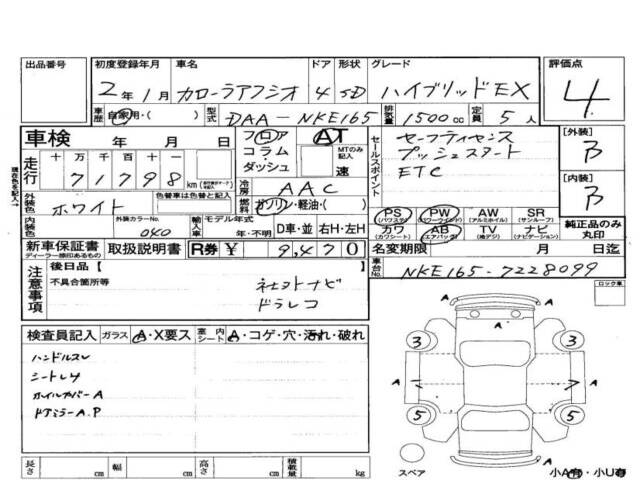 出品番号 初度登録年月 車名 ドア 形状 グレード 評価点
2年1月 カローラアクシオ 4 SD ハイブリッドEX 4
車歴 自家用・( ) 型式 DAA-NKE165 排気量 1500cc 定員 5人
車検 年 月 日 フロア AT セールスポイント セーフティセンス [外装]
走行 十 万 千 百 十 一 コラム MTのみ記入 プッシュスタート B
71798km ダッシュ 速 ETC
現在色を記入→ 外装色 色替車は色替と記入 冷房 AAC [内装]
ホワイト 燃料 ガソリン・軽油・( ) B
PS PW AW SR
(パワステ) (パワーウインド) (アルミホイル) (サンルーフ)
内装色 外装カラーNo. 040 輸入車 モデル年式 年・不明 D車・並 右H・左H カワ AB TV ナビ 純正品のみ丸印
(カワシート) (エアバッグ) (地デジ) (ナビゲーション)
新車保証書 取扱説明書 R券 ¥ 9,470 名変期限 月 日迄
ディーラー捺印あるもの
注意事項 後日品【 】 車台No. NKE165-7228099
不具合箇所等 社外ナビ ロック車
ドラレコ
検査員記入 ガラス A・X要ス 室内シート A・コゲ・穴・汚れ・破れ
ハンドルスレ
シートレサ
ホイルカバーA
ドアミラーA.P
A
3 A 3
A A
5 5
A
スペア 小A有・小U有
長さ cm 幅 cm 高さ cm 積載量 kg